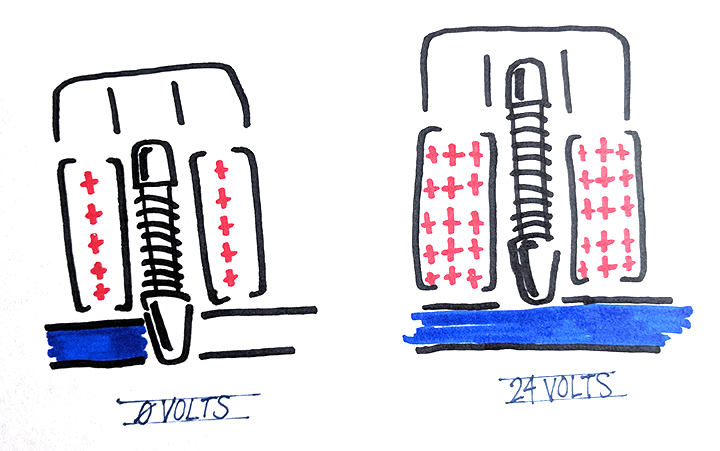 0 VOLTS
24 VOLTS